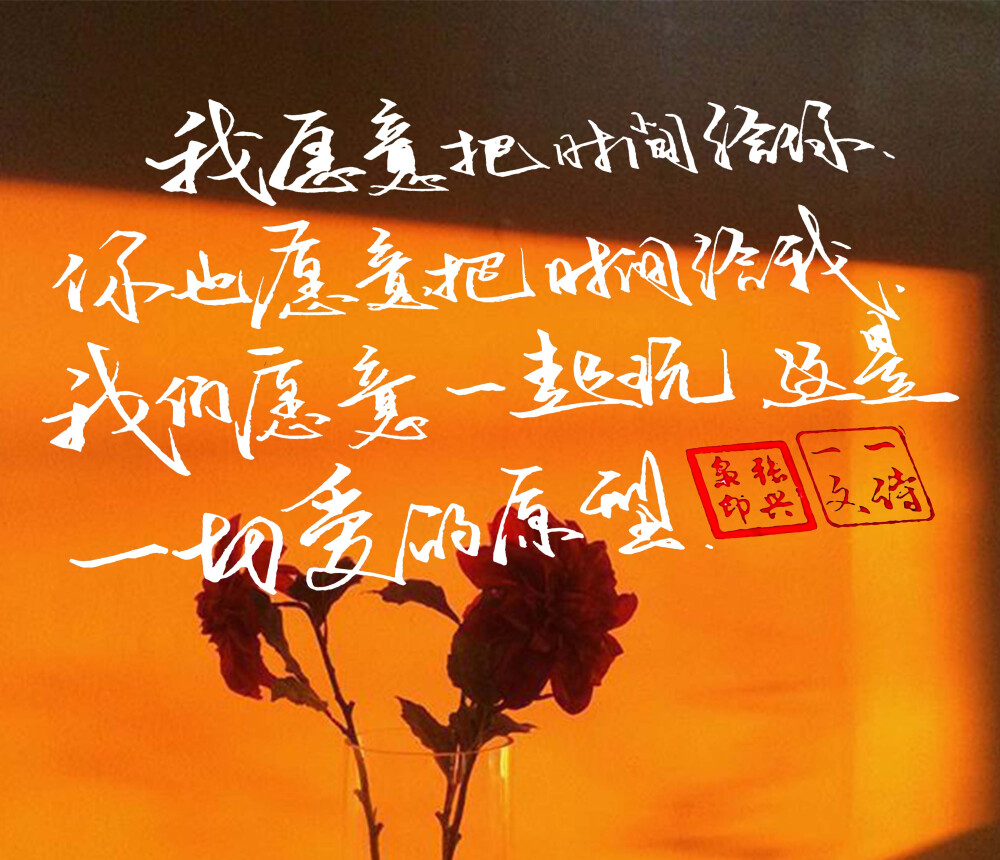 我愿意把时间给你.
你也愿意把时间给我.
我们愿意一起玩 这是
一切爱的原型.
张兴泉印
一诗一文